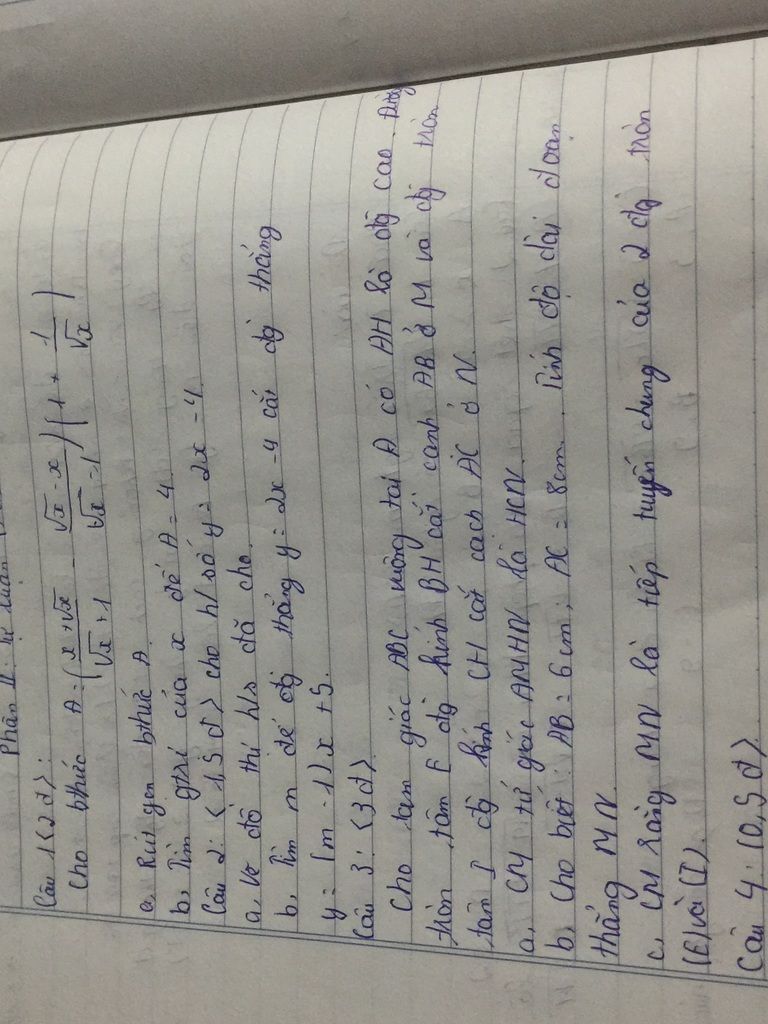 Phần II: Tự luận
Câu 1 <2đ>:
Cho bthức A = (x+√x/√x+1 - √x-x/√x-1)(1 + 1/√x)
a, Rút gọn bthức A.
b, Tìm gtrị của x để A = 4.
Câu 2: <1,5 đ> cho h/số y = 2x - 4.
a, Vẽ đồ thị h/s đã cho.
b, Tìm m để đg thẳng y = 2x - 4 cắt đg thẳng
y = (m-1)x + 5.
Câu 3: <3đ>
Cho tam giác ABC vuông tại A có AH là đg cao. Đường
tròn tâm E đg kính BH cắt cạnh AB ở M và đg tròn
tâm I đg kính CH cắt cạch AC ở N.
a, CM tứ giác AMHN là HCN.
b, Cho biết: AB = 6cm; AC = 8cm. Tính độ dài đoạn
thẳng MN.
c, CM rằng MN là tiếp tuyến chung của 2 đg tròn
(E) và (I).
Câu 4: (0,5 đ>